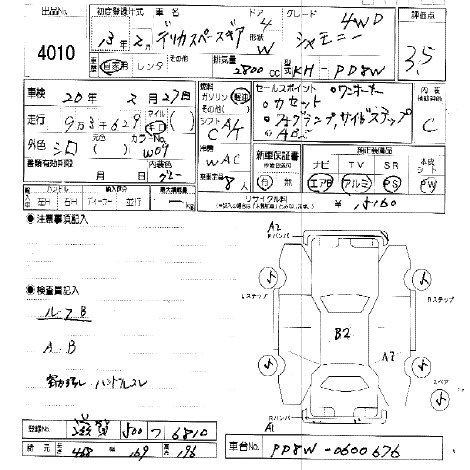 出品No. 4010
初度登録年式 13年2月
車名 デリカスペースギア
ドア 4
形状 W
グレード 4WD シャモニー
評価点 3.5
車歴 自家用 レンタ その他( )
排気量 2800cc
型式 KH-PD8W
車検 20年 2月 27日
走行 9万3千629 マイル( ) キロ
外色 シロ
元色( )
カラーNo. W09
書類有効期限 月 日
内装色 グレー
燃料 ガソリン 軽油 その他( )
シフト C A/T
冷房 W AC
乗車定員 8人
セールスポイント
・カセット ・ワンオーナー
・フォグランプ,サイドステップ
・4D
内装 補助評価 C
新車保証書 有 無
純正装備品
ナビ TV SR 本皮シート
エアB アルミ PS PW
輸入 ハンドル 左H 右H
輸入区分 ディーラー 並行
最大積載量 — kg
リサイクル料 ¥ 15160
●注意事項記入
●検査員記入
ルーフB
A B
ハンドルスレ
A2
Rバンパー
Lステップ
Rステップ
B2
A2
スペア
Rバンパー
A1
登録No. 滋賀 500 フ 6810
諸元 長さ 468 幅 169 高さ 196
車台No. PD8W-0600676